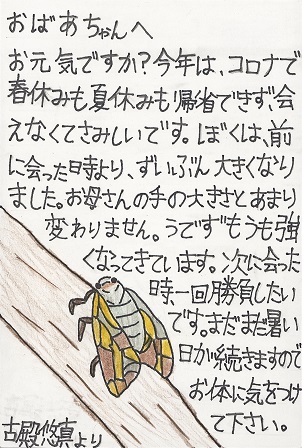 おばあちゃんへ
お元気ですか?今年は、コロナで
春休みも夏休みも帰省できず、会
えなくてさみしいです。ぼくは、前
に会った時より、ずいぶん大きくなり
ました。お母さんの手の大きさとあまり
変わりません。うでずもうも強
くなってきています。次に会った
時、一回勝負したい
です。まだまだ暑い
日が続きますので
お体に気をつけ
て下さい。
古殿悠真より